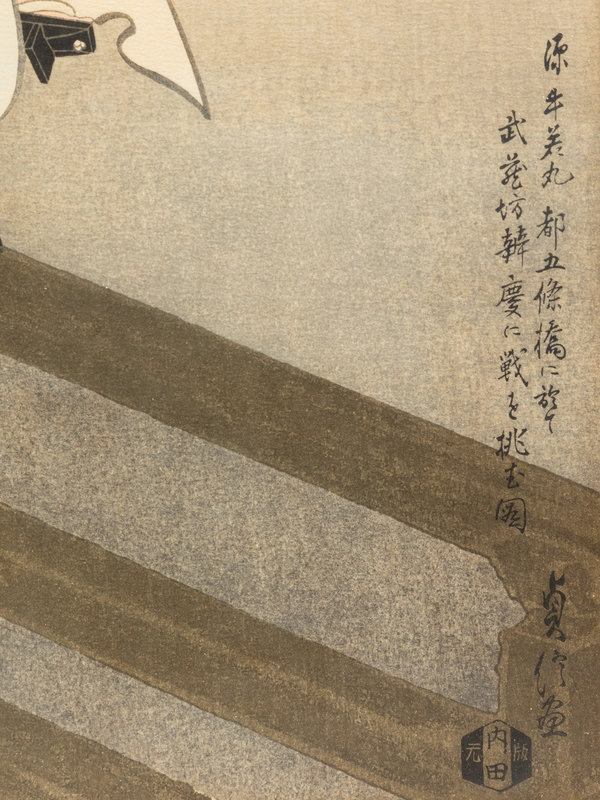 源牛若丸 都五條橋に於て
武蔵坊辨慶に戦を挑む図
貞信画
版元
内田